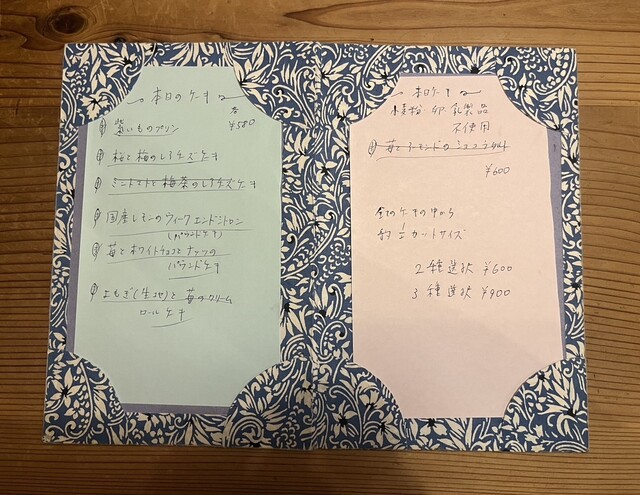 本日のケーキ
各
¥580
紫いものプリン
桜と梅のレアチーズケーキ
ミニトマトと梅茶のレアチーズケーキ
国産レモンのウィークエンドシトロン
(パウンドケーキ)
苺とホワイトチョコとナッツの
パウンドケーキ
よもぎ(生地)と苺のクリーム
ロールケーキ
本日ケーキ
小麦粉 卵 乳製品
不使用
苺とアーモンドのショコラタルト
¥600
全てのケーキの中から
約1/2カットサイズ
2種選択 ¥600
3種選択 ¥900